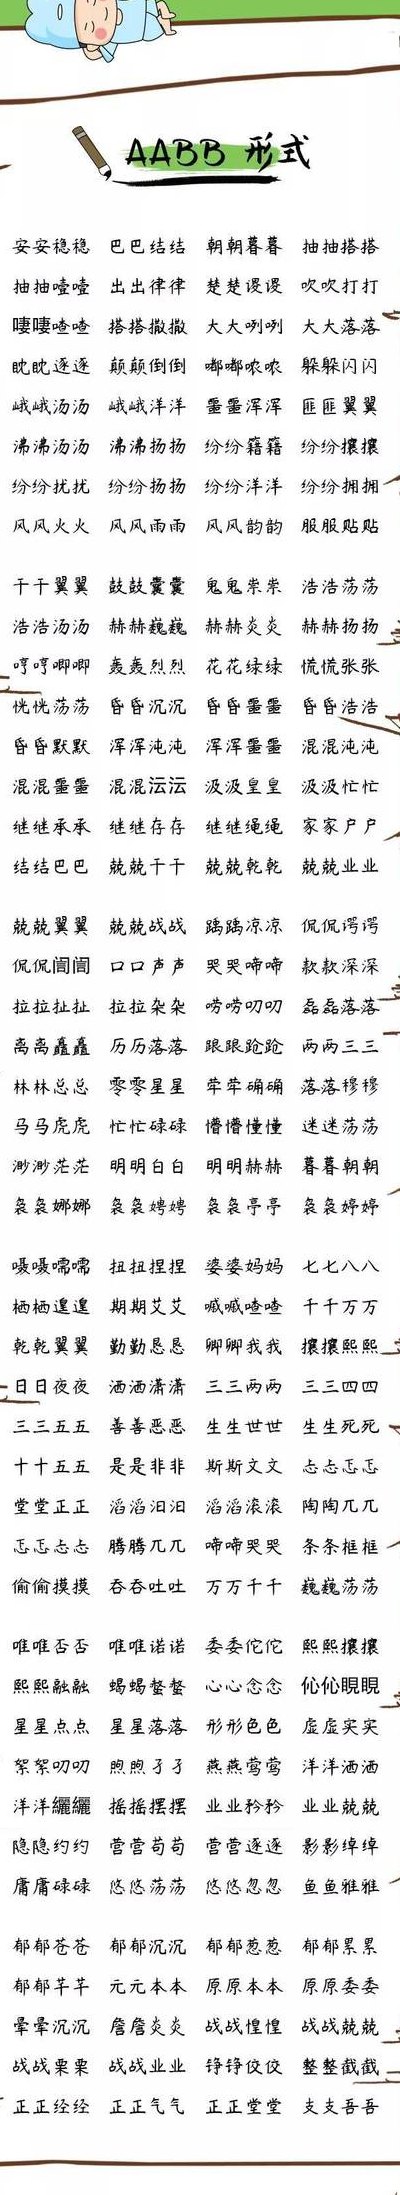 AABB 形式
安安稳稳 巴巴结结 朝朝暮暮 抽抽搭搭
抽抽噎噎 出出律律 楚楚谡谡 吹吹打打
啛啛喳喳 搭搭撒撒 大大咧咧 大大落落
眈眈逐逐 颠颠倒倒 嘟嘟哝哝 躲躲闪闪
峨峨汤汤 峨峨洋洋 噩噩浑浑 匪匪翼翼
沸沸汤汤 沸沸扬扬 纷纷籍籍 纷纷攘攘
纷纷扰扰 纷纷扬扬 纷纷洋洋 纷纷拥拥
风风火火 风风雨雨 风风韵韵 服服贴贴
干干翼翼 鼓鼓囊囊 鬼鬼祟祟 浩浩荡荡
浩浩汤汤 赫赫巍巍 赫赫炎炎 赫赫扬扬
哼哼唧唧 轰轰烈烈 花花绿绿 慌慌张张
恍恍荡荡 昏昏沉沉 昏昏噩噩 昏昏浩浩
昏昏默默 浑浑沌沌 浑浑噩噩 混混沌沌
混混噩噩 混混沄沄 汲汲皇皇 汲汲忙忙
继继承承 继继存存 继继绳绳 家家户户
结结巴巴 兢兢干干 兢兢乾乾 兢兢业业
兢兢翼翼 兢兢战战 踽踽凉凉 侃侃谔谔
侃侃訚訚 口口声声 哭哭啼啼 款款深深
拉拉扯扯 拉拉杂杂 唠唠叨叨 磊磊落落
离离矗矗 历历落落 踉踉跄跄 两两三三
林林总总 零零星星 荦荦确确 落落穆穆
马马虎虎 忙忙碌碌 懵懵懂懂 迷迷荡荡
渺渺茫茫 明明白白 明明赫赫 暮暮朝朝
袅袅娜娜 袅袅娉娉 袅袅亭亭 袅袅婷婷
嗫嗫嚅嚅 扭扭捏捏 婆婆妈妈 七七八八
栖栖遑遑 期期艾艾 嘁嘁喳喳 千千万万
乾乾翼翼 勤勤恳恳 卿卿我我 攘攘熙熙
日日夜夜 洒洒潇潇 三三两两 三三四四
三三五五 善善恶恶 生生世世 生生死死
十十五五 是是非非 斯斯文文 忐忐忑忑
堂堂正正 滔滔汩汩 滔滔滚滚 陶陶兀兀
忑忑忐忐 腾腾兀兀 啼啼哭哭 条条框框
偷偷摸摸 吞吞吐吐 万万千千 巍巍荡荡
唯唯否否 唯唯诺诺 委委佗佗 熙熙攘攘
熙熙融融 蝎蝎螫螫 心心念念 伈伈睍睍
星星点点 星星落落 形形色色 虚虚实实
絮絮叨叨 煦煦孑孑 燕燕莺莺 洋洋洒洒
洋洋纚纚 摇摇摆摆 业业矜矜 业业兢兢
隐隐约约 营营苟苟 营营逐逐 影影绰绰
庸庸碌碌 悠悠荡荡 悠悠忽忽 鱼鱼雅雅
郁郁苍苍 郁郁沉沉 郁郁葱葱 郁郁累累
郁郁芊芊 元元本本 原原本本 原原委委
晕晕沉沉 詹詹炎炎 战战惶惶 战战兢兢
战战栗栗 战战业业 铮铮佼佼 整整截截
正正经经 正正气气 正正堂堂 支支吾吾